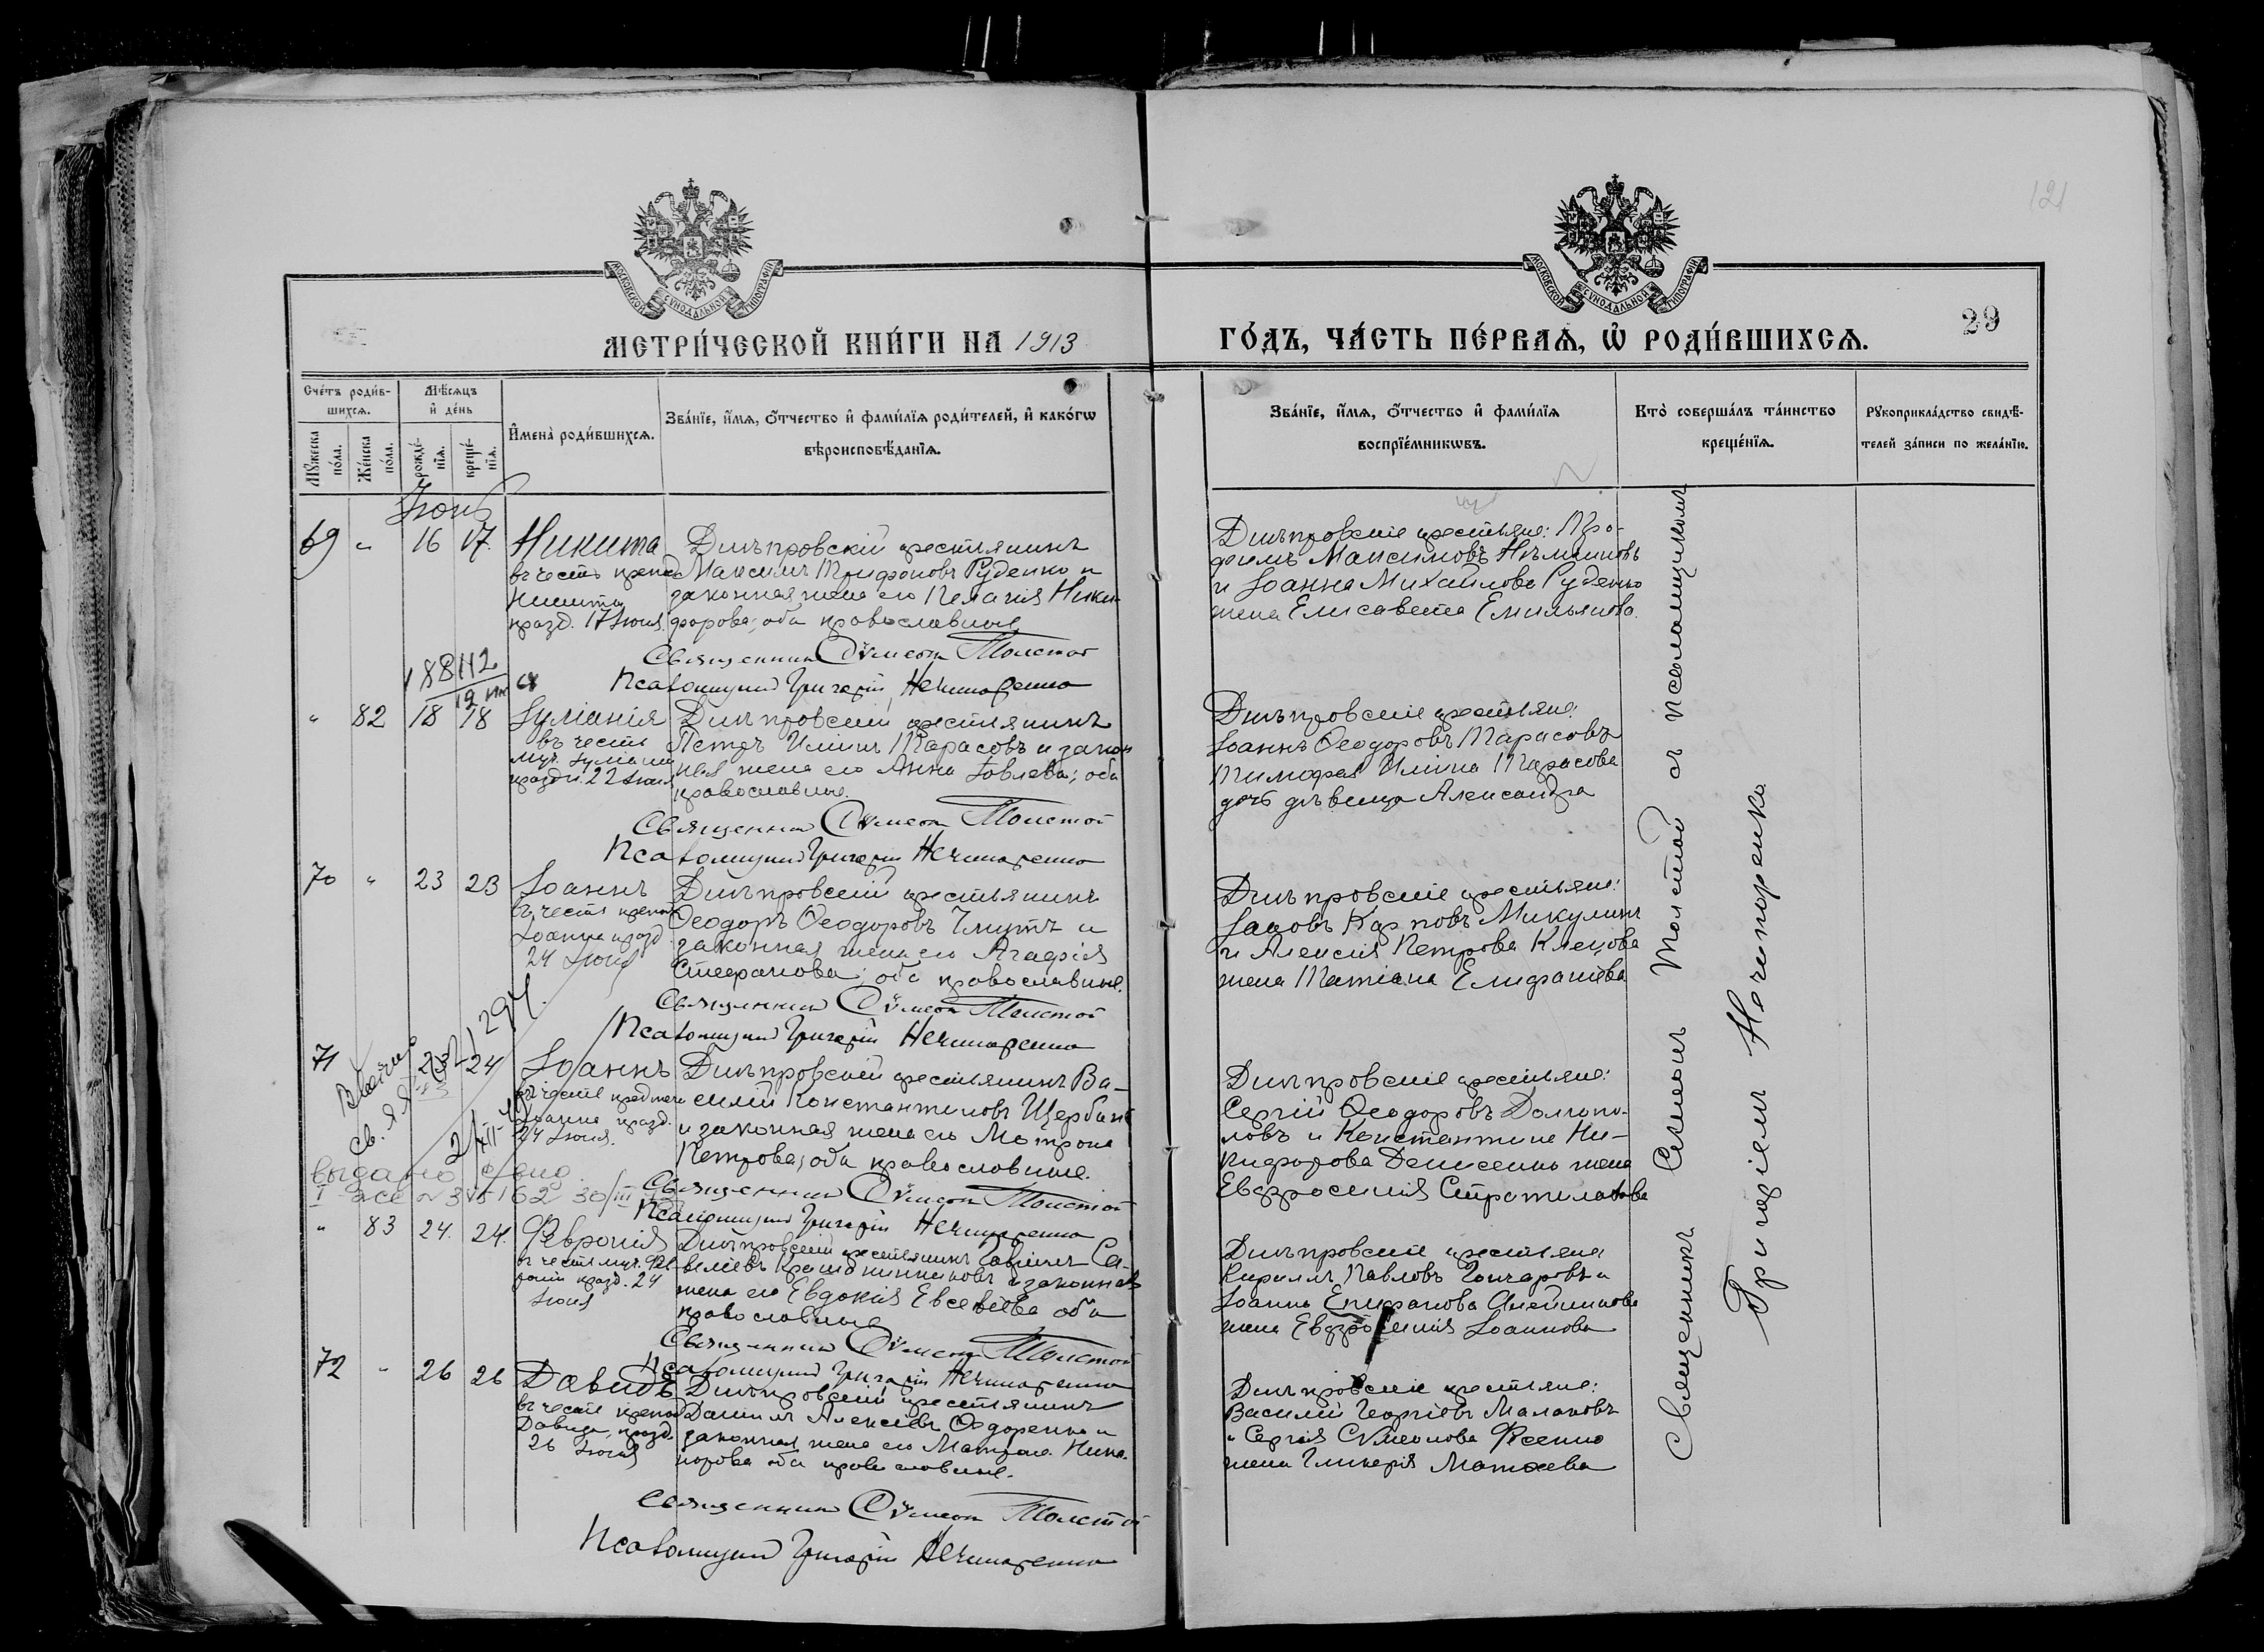 121
МОСКОВСКОЙ СУНОДАЛЬНОЙ ТИПОГРАФІИ
МОСКОВСКОЙ СУНОДАЛЬНОЙ ТИПОГРАФІИ
МЕТРИ́ЧЕСКОЙ КНИ́ГИ НА 1913
ГО́ДЪ, ЧА́СТЬ ПЕ́РВАѦ, Ѽ РОДИ́ВШИХСѦ.
29
Сче́тъ роди́в-
шихсѧ.
Мѣ́сѧцъ
и҆ де́нь
Мꙋ́жеска
по́ла.
Же́нска
по́ла.
рожде́-
нїѧ.
креще́-
нїѧ.
И҆мена̀ роди́вшихсѧ.
Зва́нїе, и҆́мѧ, ѻ҆́тчество и҆ фами́лїѧ роди́телей, и҆ како́гѡ
вѣроисповѣ́данїѧ.
Зва́нїе, и҆́мѧ, ѻ҆́тчество и҆ фами́лїѧ
воспрїе́мникѡвъ.
Кто̀ соверша́лъ та́инство
креще́нїѧ.
Рꙋкоприкла́дство свидѣ́-
телей за́писи по жела́нїю.
Іюнь
69 " 16 17.
Никита
въ честь препод
Никиты
празд. 17 Іюня.
Днѣпровскій крестьянинъ
Максимъ Трифоновъ Руденко и
законная жена его Пелагія Ники-
форова; оба православные
Священникъ Сѵмеонъ Толстой
Псаломщикъ Григорій Нечипоренко
Днѣпровскіе крестьяне: Про-
Максимовъ
и Іоанна Михайлова Руденко
жена Елисавета Емильянова.
188112
" 82 18 18
Іуліанія
въ честь
муч. Іуліаніи
праздн. 22 Іюня
Днѣпровскій крестьянинъ
Петръ Ильинъ Тарасовъ и закон
ная жена его Анна Іовлева; оба
православные.
Священникъ Сѵмеонъ Толстой
Псаломщикъ Григорій Нечипоренко
Днѣпровскіе крестьяне:
Іоаннъ Ѳеодоровъ Тарасовъ
Тимофея Ильина Тарасова
дочь дѣвица Александра
70 " 23 23
Іоаннъ
въ честь
Іоанна празд
24 Іюня
Днѣпровскій крестьянинъ
Ѳеодоръ Ѳеодоровъ и
законная жена его Агафія
Стефанова; оба православные.
Священникъ Сѵмеонъ Толстой
Псаломщикъ Григорій Нечипоренко
Днѣпровскіе крестьяне:
Іаковъ Карповъ Микулинъ
и Алексія Петрова Клецова
жена Татіана Епифаніева
71 23 24
Іоаннъ
въ честь предтечи
Іоанна празд.
24 Іюня.
Днѣпровскій крестьянинъ Ва-
силій Константиновъ Щербина
и законная жена его Матрона
Петрова, оба православные.
Священникъ Сѵмеонъ Толстой
Псаломщикъ Григорій Нечипоренко
Днѣпровскіе крестьяне:
Сергій Ѳеодоровъ Долгопо-
ловъ и Константина Ни-
кифорова Денисенко жена
Евфросинія Стратилатова
выдано
" 83 24. 24.
Февронія
въ честь муч. Фев-
роніи празд. 24
Іюня
Днѣпровскій крестьянинъ Гавріилъ Са-
и законная
жена его Евдокія Евсевіева оба
православные
Священникъ Сѵмеонъ Толстой
Псаломщикъ Григорій Нечипоренко
Днѣпровскіе крестьяне
Кириллъ Павловъ Гончаровъ и
Іоанна Епифанова Олейникова
жена Евфросинія Іоаннова
72 " 26 26
Давидъ
въ честь препод
Давида, празд.
26 Іюня
Днѣпровскій крестьянинъ
Даніилъ Алексѣевъ Ѳедоренко и
законная жена его Матрона Ника-
норова оба православные.
Священникъ Сѵмеонъ Толстой
Псаломщикъ Григорій Нечипоренко
Днѣпровскіе крестьяне:
Василій Георгіевъ Малаховъ
и Сергія Сѵмеонова Фесенко
жена Гликерія Матѳеева
Священникъ Симеонъ Толстой съ псаломщикомъ
Григоріемъ Нечипоренко